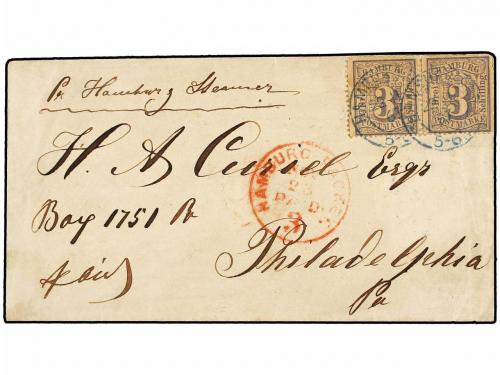 Pr Hamburg Steamer
HAMBURG
3
POSTMARKE
HAMBURG
3
Schilling
POSTMARKE
5-6
H. A. Cursiel Esqr
HAMBURG PACKET
PAID
Box 1751 Po
Paid
Philadelphia
Pa